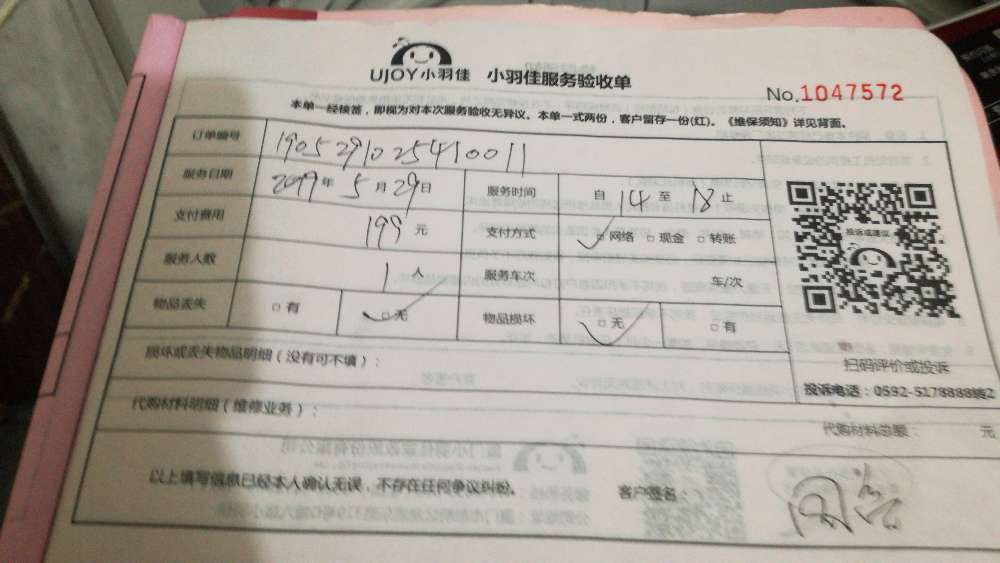 UJOY小羽佳 小羽佳服务验收单
No.1047572
本单一经接签，即视为对本次服务验收无异议。本单一式两份，客户留存一份(红)。《维保须知》详见背面。
订单编号 1905291025410011
服务日期 2019年5月29日 服务时间 自14至18止
支付费用 199元 支付方式 □网络 □现金 □转账
服务人数 1人 服务车次 车/次
物品丢失 □有 □无 物品损坏 □无 □有
投诉或建议
扫码评价或投诉
投诉电话：0592-5178888转2
损坏或丢失物品明细（没有可不填）：
代购材料明细（维修业务）：
代购材料总额： 元
以上填写信息已经本人确认无误，不存在任何争议纠纷。 客户签名：